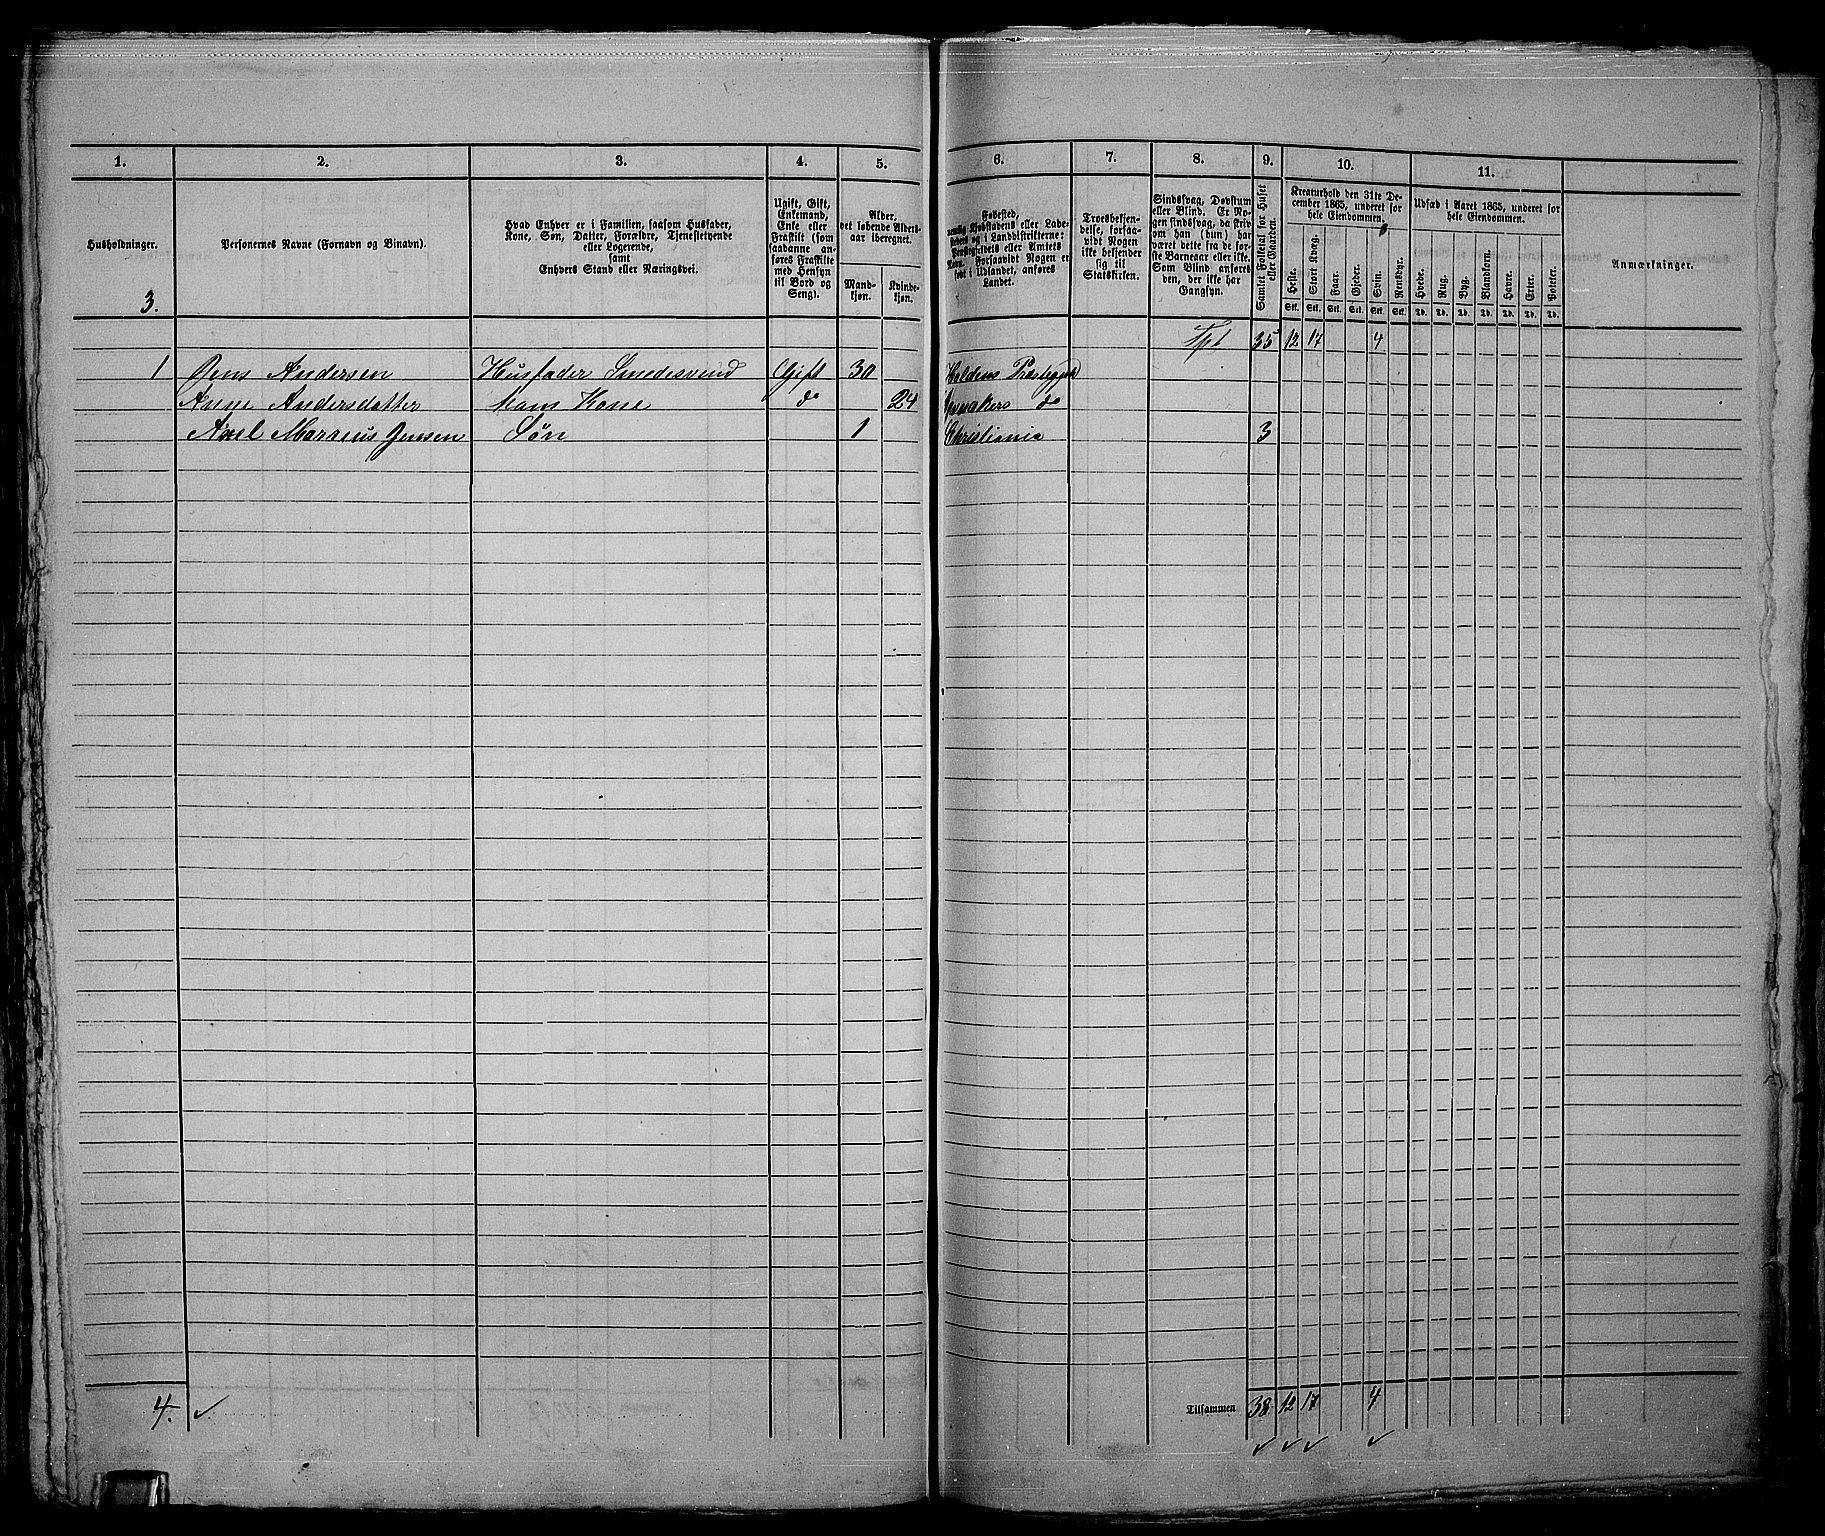 1. 2. 3. 4. 5. 6. 7. 8. 9. 10. 11.
Husholdninger.
Personernes Navne (Fornavn og Binavn).
Hvad Enhver er i Familien, saasom Husfader,
Kone, Søn, Datter, Forældre, Tjenestetyende
eller Logerende,
samt
Enhvers Stand eller Næringsvei.
Ugift, Gift,
Enkemand,
Enke eller
Fraskilt (som
saadanne an-
føres Fraskilte
med Hensyn
til Bord og
Seng).
Alder,
det løbende Alders-
aar iberegnet.
Mand-
kjøn.
Kvinde-
kjøn.
Fødested,
nemlig Kjøbstadens eller Lade-
stedets og i Landdistrikterne:
Præstegjeldets eller Amtets
Navn. Forsaavidt Nogen er
født i Udlandet, anføres
Landet.
Troesbekjen-
delse, forsaa-
vidt Nogen
ikke bekjender
sig til
Statskirken.
Sindssvag, Døvstum
eller Blind. Er No-
gen sindssvag, da skriv
om han (hun) har
været dette fra de før-
ste Barneaar eller ikke.
Som Blind anføres
den, der ikke har
Gangsyn.
Samlet Folketal for Huset
eller Gaarden.
Kreaturhold den 31te De-
cember 1865, underet for
hele Eiendommen.
Heste. Stort Kvæg. Faar. Gjeder. Svin. Rensdyr.
Stk. Stk. Stk. Stk. Stk. Stk.
Udsæd i Aaret 1865, underet for
hele Eiendommen.
Hvede. Rug. Byg. Blandkorn. Havre. Erter. Poteter.
Td. Td. Td. Td. Td. Td. Td.
Anmærkninger.
3.
Tpt 35 12 17 4
1 Jens Andersen Husfader Smedesvend Gift 30 Holdens Præstegjeld
Anne Andersdatter Hans Kone do 24 do
Axel Marinius Jensen Søn 1 Christiania 3
4. ✓ Tilsammen 38 12 17 4
✓ ✓ ✓ ✓